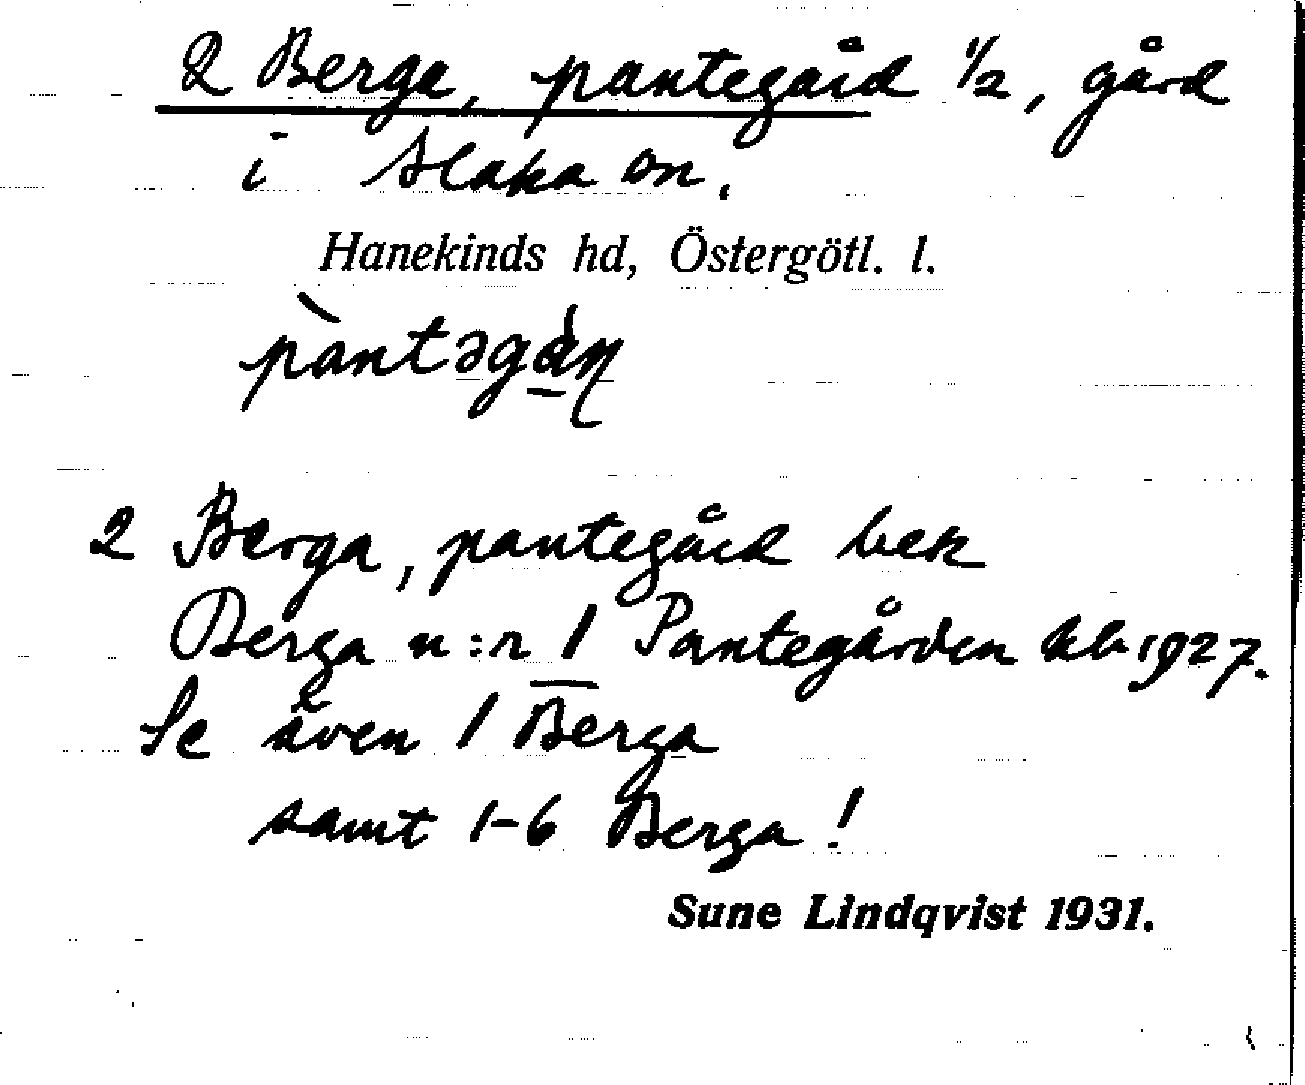 2 Berga, pantegård 1/2, gård
i Slaka sn.
Hanekinds hd, Östergötl. l.
2 Berga, pantegård bek
Berga n:r 1 Pantegården kb 1927.
Se även 1 Berga
samt 1-6 Berga!
Sune Lindqvist 1931.